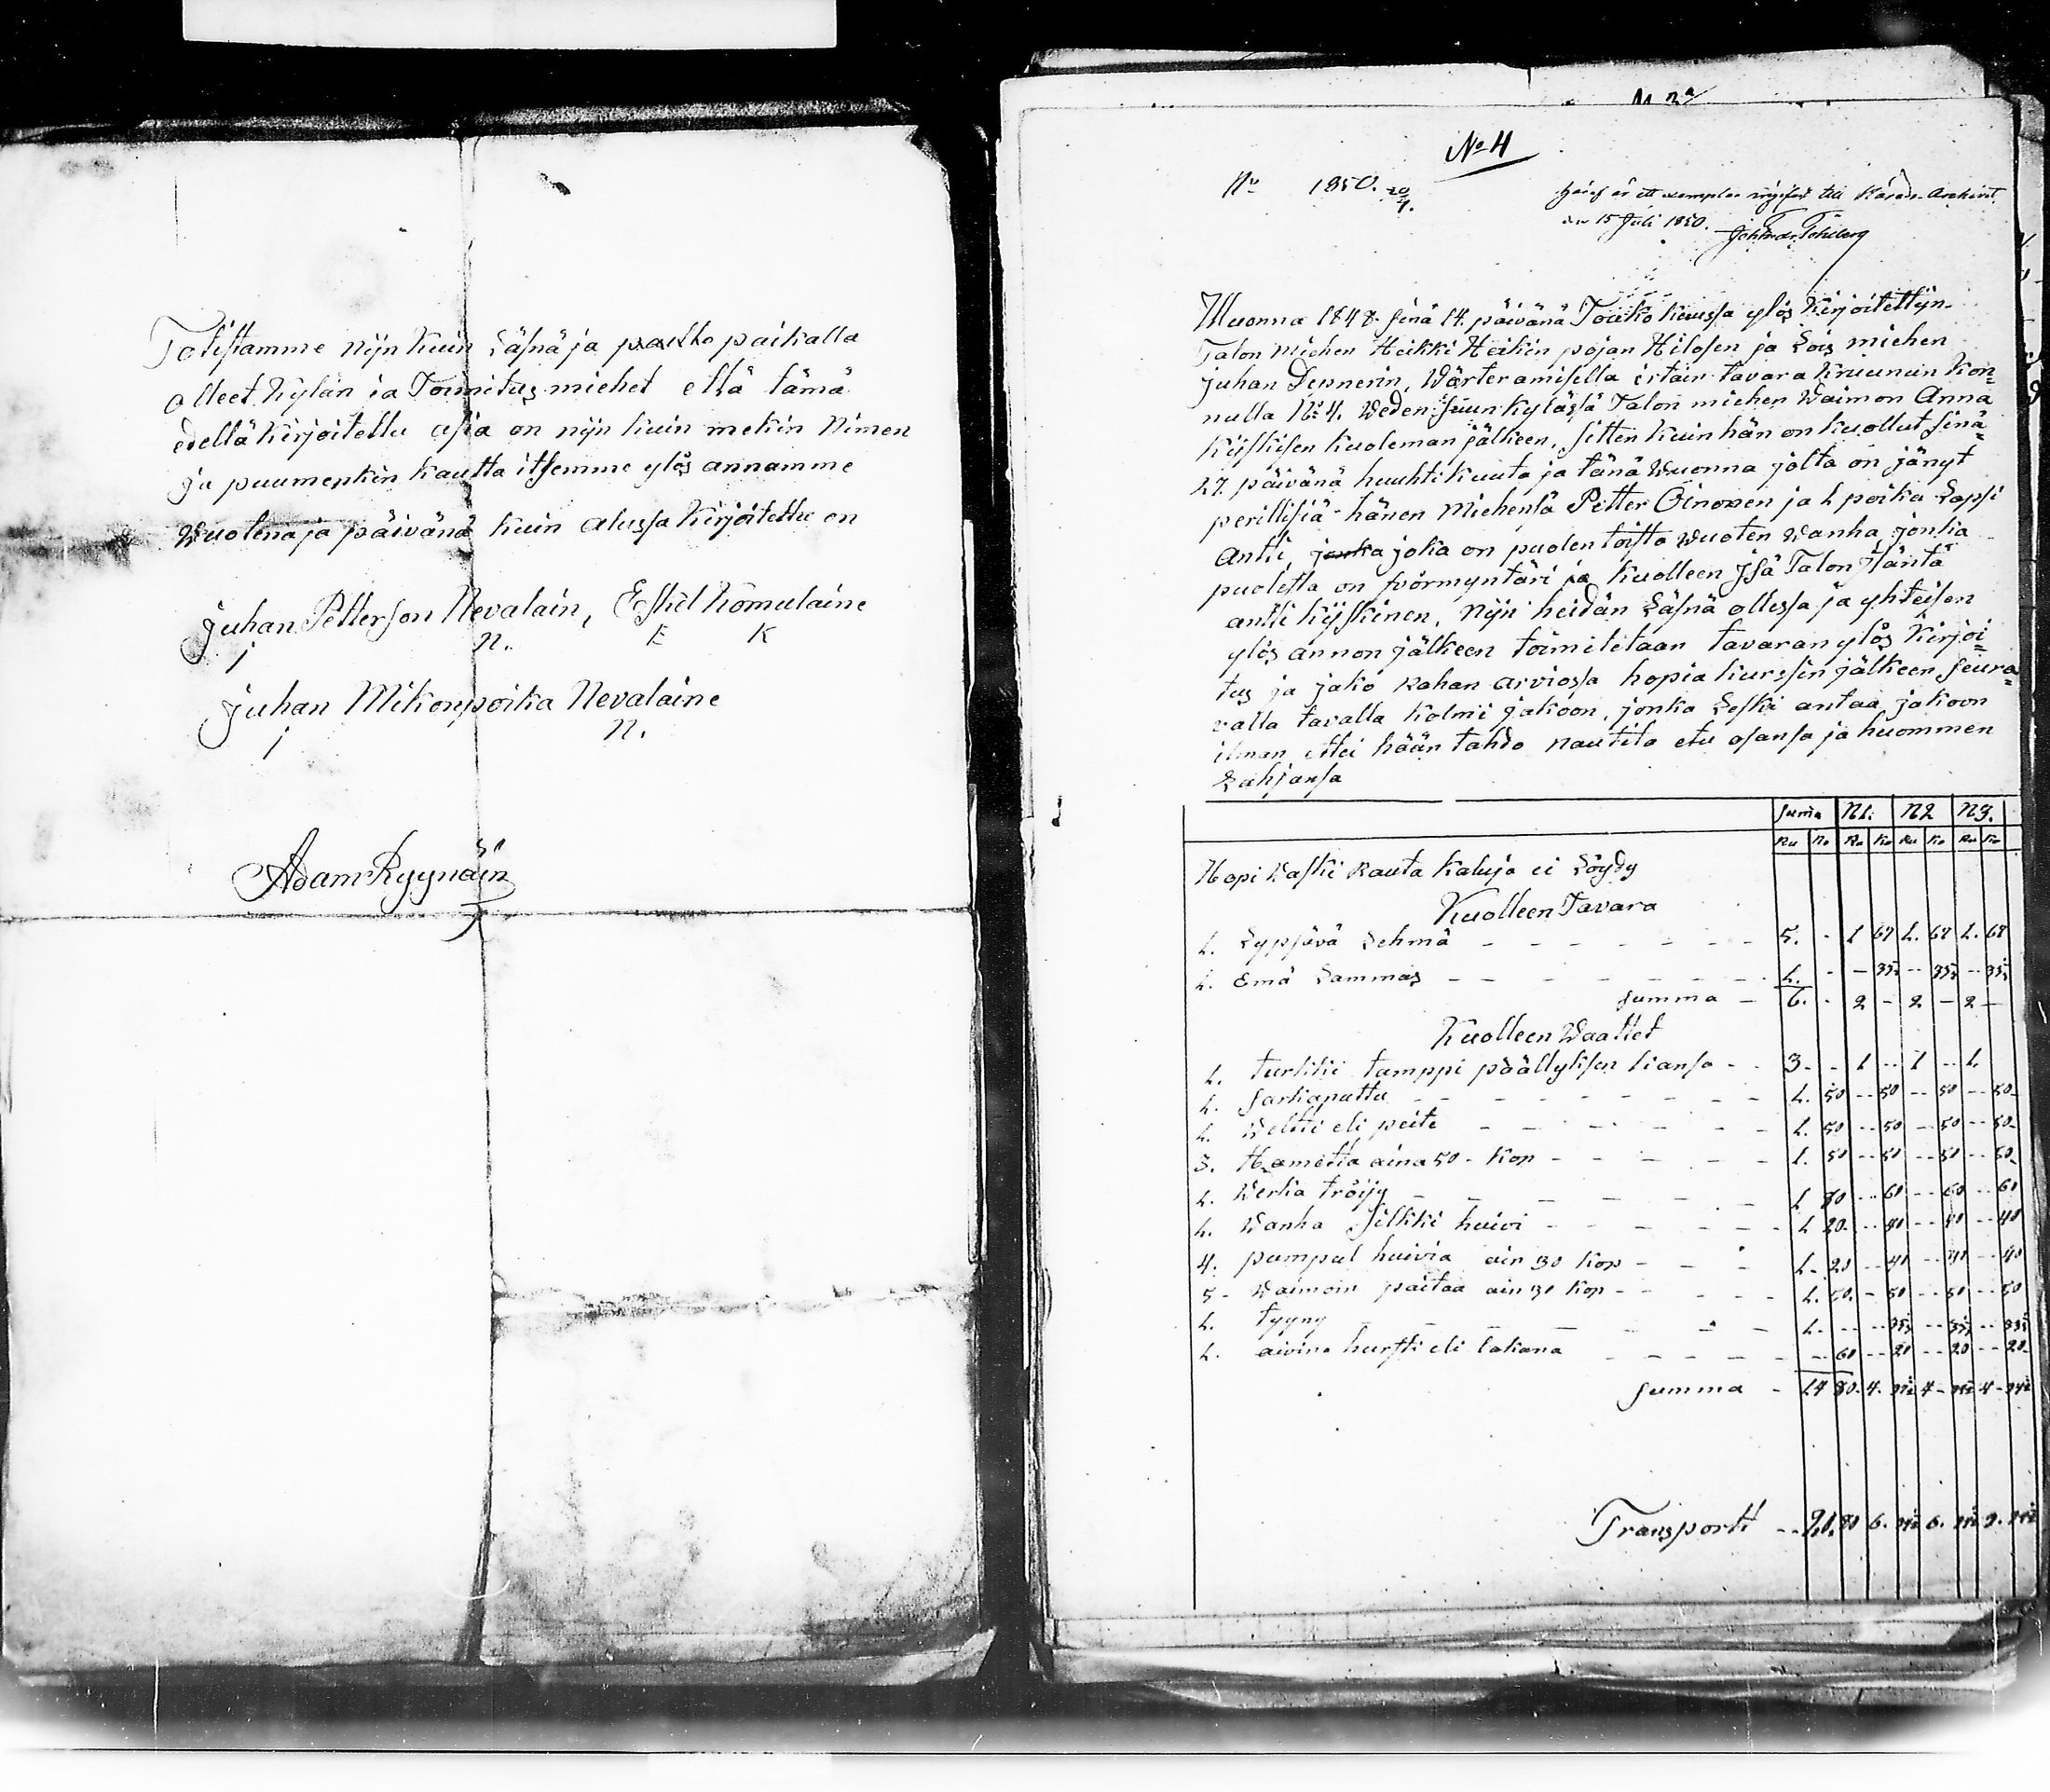 Totistamme niin kuin Läsnä ja paikalla
olleet Kylän ja Toimitus miehet että tämä
edellä kirjoitettu asia on niin kuin mekin Nimen
ja puumerkin kautta itsemme ylös annamme
Wuotena ja päivänä kuin alussa Kirjoitettu on
Juhan Petterson Nevalain, Eskel Komulaine
j n. E K
Juhan Mikonpoika Nevalaine
j n.
Adam Ryynäin
No 4
No 1850. 20/4.
Häraf är ett exemplar till Härads-Archivet
den 15 Juli 1850.
Wuonna 1848 sinä 14. päivänä Touko kuussa ylös Kirjoitettijn
Talon miehen Heikki Heikin pojan Hilosen ja Lois miehen
Juhan Dennerin, Wärteeramisella irtain tavara Kruunun Kon=
nulla No 4. Weden Suun kylässä Talon miehen Waimon Anna
Kijskisen kuoleman jälkeen, sitten kuin hän on kuollut sinä
27. päivänä huuhti kuuta ja tänä Wuonna jolta on jänyt
perillisiä hänen Miehensä Petter Oinonen ja 1 poika Lapsi
Antti, joka on puolen toista wuoten wanha, jonka
puolelta on förmyntäri ja kuolleen Jsä Talon Jsäntä
antti Kijskinen, Nijn heidän Läsnä ollessa ja yhteisen
ylös annon jälkeen toimitetaan tavaran ylös kirjoi=
tus ja jako Rahan arviossa hopia kurssin jälkeen seura=
valla tavalla kolmi jakoon, jonka Leski antaa jakoon
ilman ettei hään tahdo nautita etu osansa ja huommen
Lahjansa
Suma N1. N2 N3.
Ru Ko Ru Ko Ru Ko Ru Ko
Hopi Waski Rauta Kaluja ei Löydy
Kuolleen Tavara
1. Lypsävä Lehmä 5. - 1 67 1. 67 1. 67
1. Emä Lammas 1. - - 33⅓ - 33⅓ - 33⅓
Summa 6. - 2 - 2 - 2 -
Kuolleen Waattet
1. turkki tamppi päällyksen kansa 3 - 1 - 1 - 1.
1. Sarkaputtu 1. 50 - 50 - 50 - 50
1. Weltti eli peite 1. 50 - 50 - 50 - 50
3. Hametta aina 50 - Kop 1. 50 - 50 - 50 - 50
1. Werka tröijy 1 80 - 60 - 60 - 60
1. Wanha Silkki huivi 1 20 - 40 - 40 - 40
4. pumpul huivia ain 30 Kop 1 - 20 - 40 - 40 - 40
5 - Waimoin paitaa ain 30 Kop 1. 50. - 50 - 50 - 50
1. tyyny 1. - - 33⅓ - 33⅓ - 33⅓
1. aivina hursti eli lakana - 60 - 20 - 20 - 20
Summa 14 80. 4. 4 - 4 -
Transportt 20. 80 6. 6.